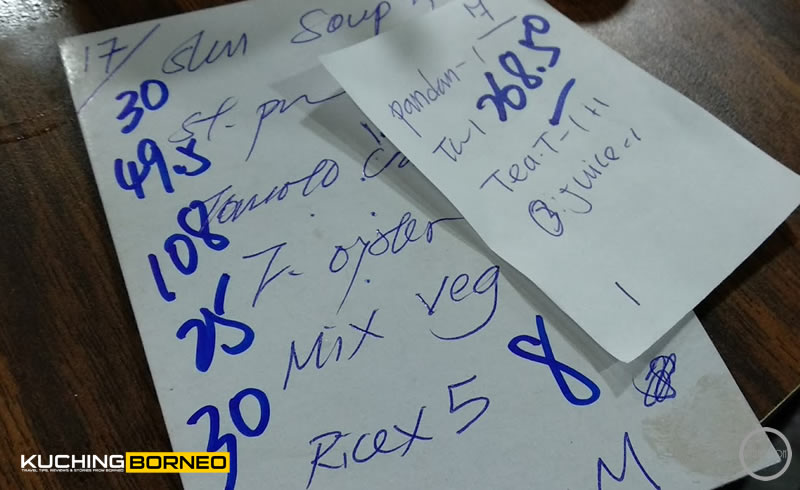 17/ Soup
30
St.
49.5
108
Z. oyster
25
Mix veg
30
Ricex5 8
M
17
pandan-1
268.50
Tea.T-1+1
B.juice-1
1
KUCHINGBORNEO
TRAVEL TIPS, REVIEWS & STORIES FROM BORNEO